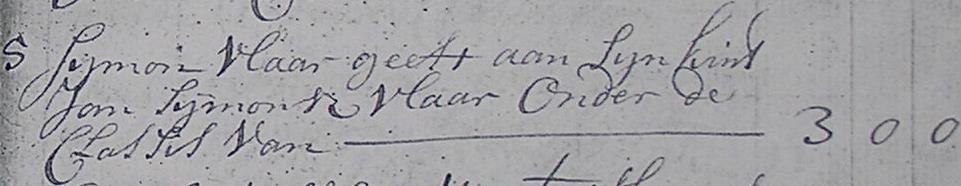 5 Symon Vlaar geeft aan Syn kint
Jan Symonsz Vlaar Onder de
Classis Van — 3 0 0